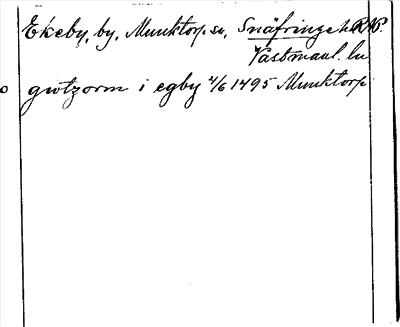 Ekeby, by, Munktorp sn, Snäfringe h. RNP.
Västmanl. ln
o gutzorm i egby 4/6 1495 Munktorp